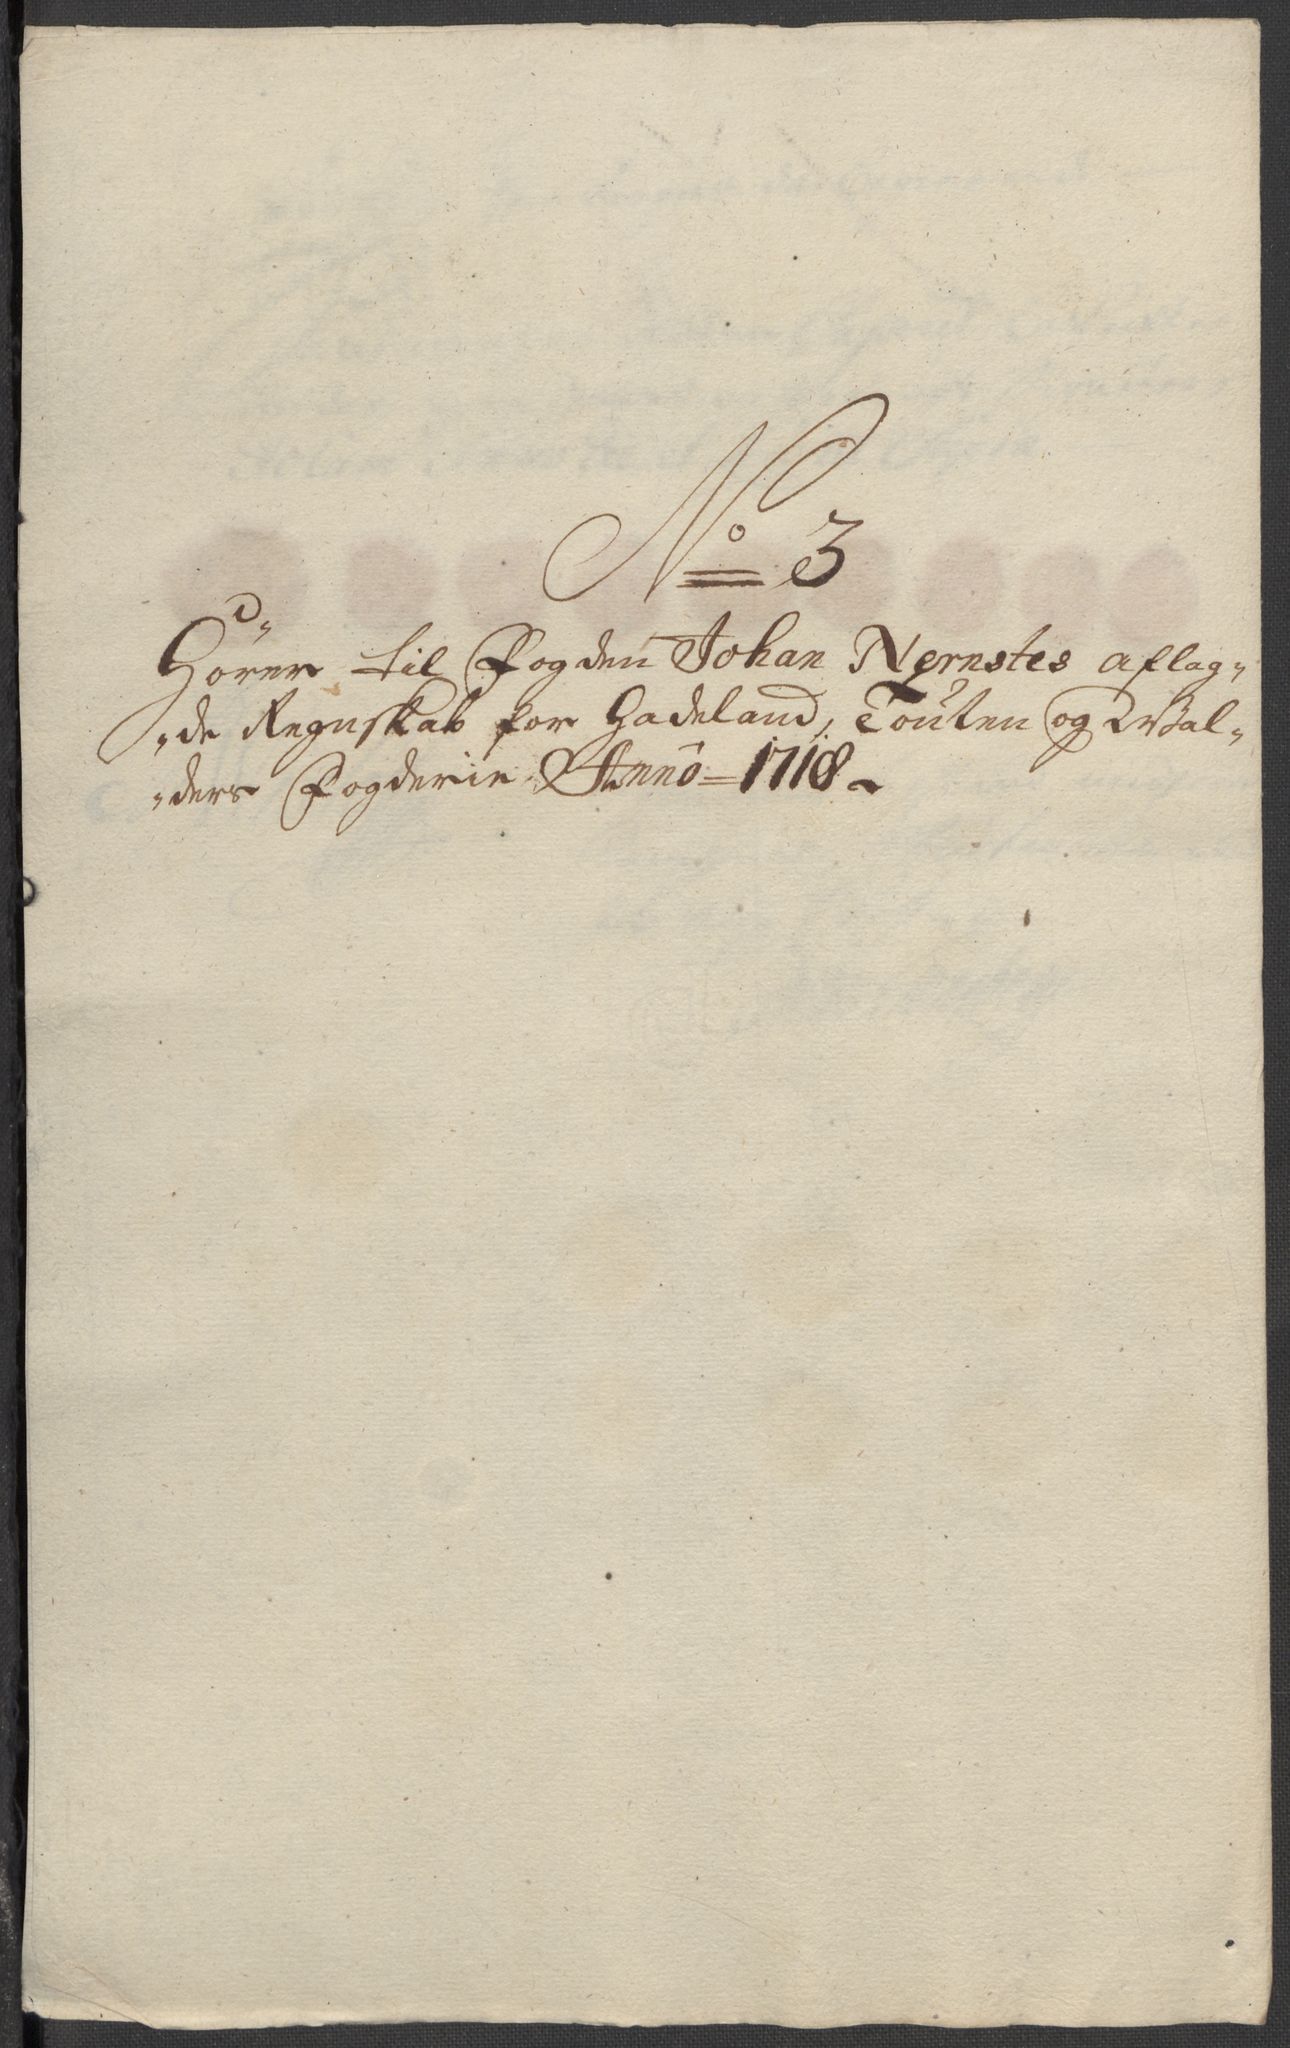 No 3
Hører til Fogden Johan Nernstes aflag-
de Regnskab for Hadeland, Touten og Wal-
ders Fogderie Anno 1718